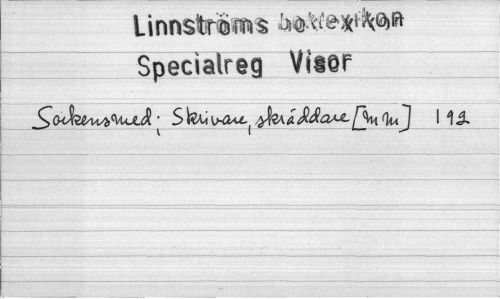 Linnströms boklexikon
Specialreg Visor
Sockensmed; Skrivare, skräddare [m m] 192